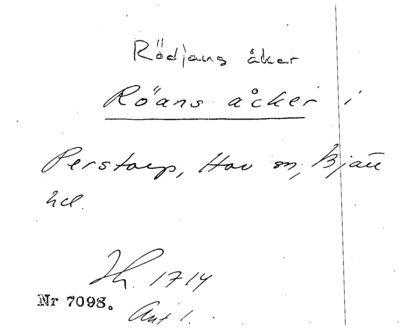 Rödjans åker
Röans åcker i
Perstorp, Hov sn, Bjäre
hd.
Jb. 1714
Nr 7098.
Ant 1.